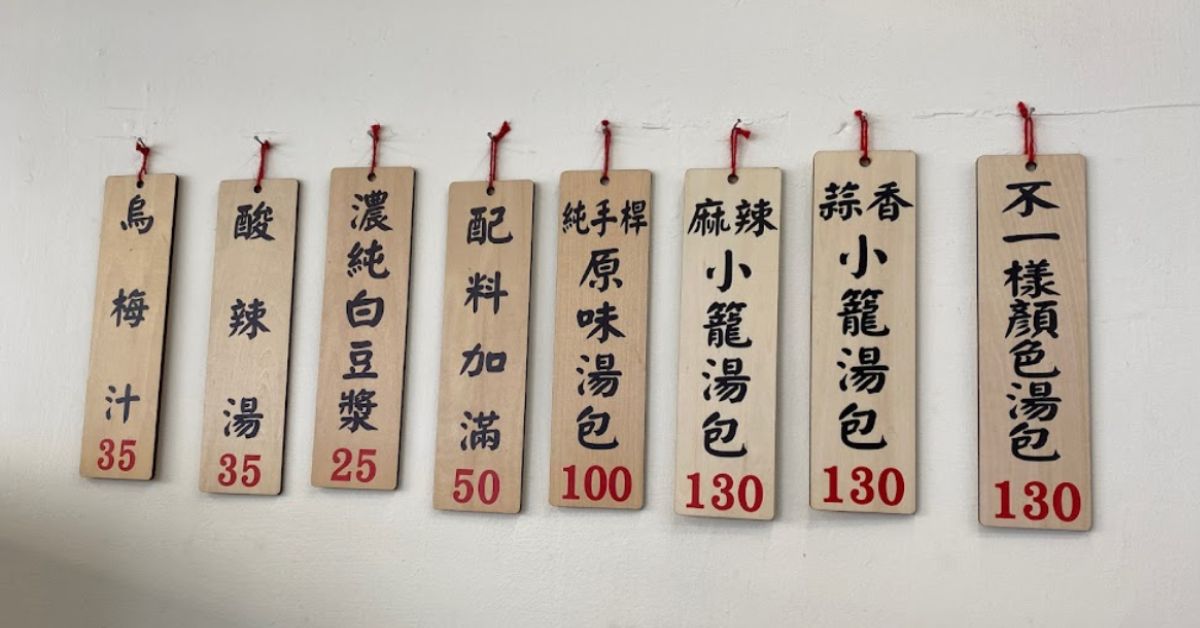 烏梅汁
35
酸辣湯
35
濃純白豆漿
25
配料加滿
50
純手桿
原味湯包
100
麻辣
小籠湯包
130
蒜香
小籠湯包
130
不一樣顏色湯包
130